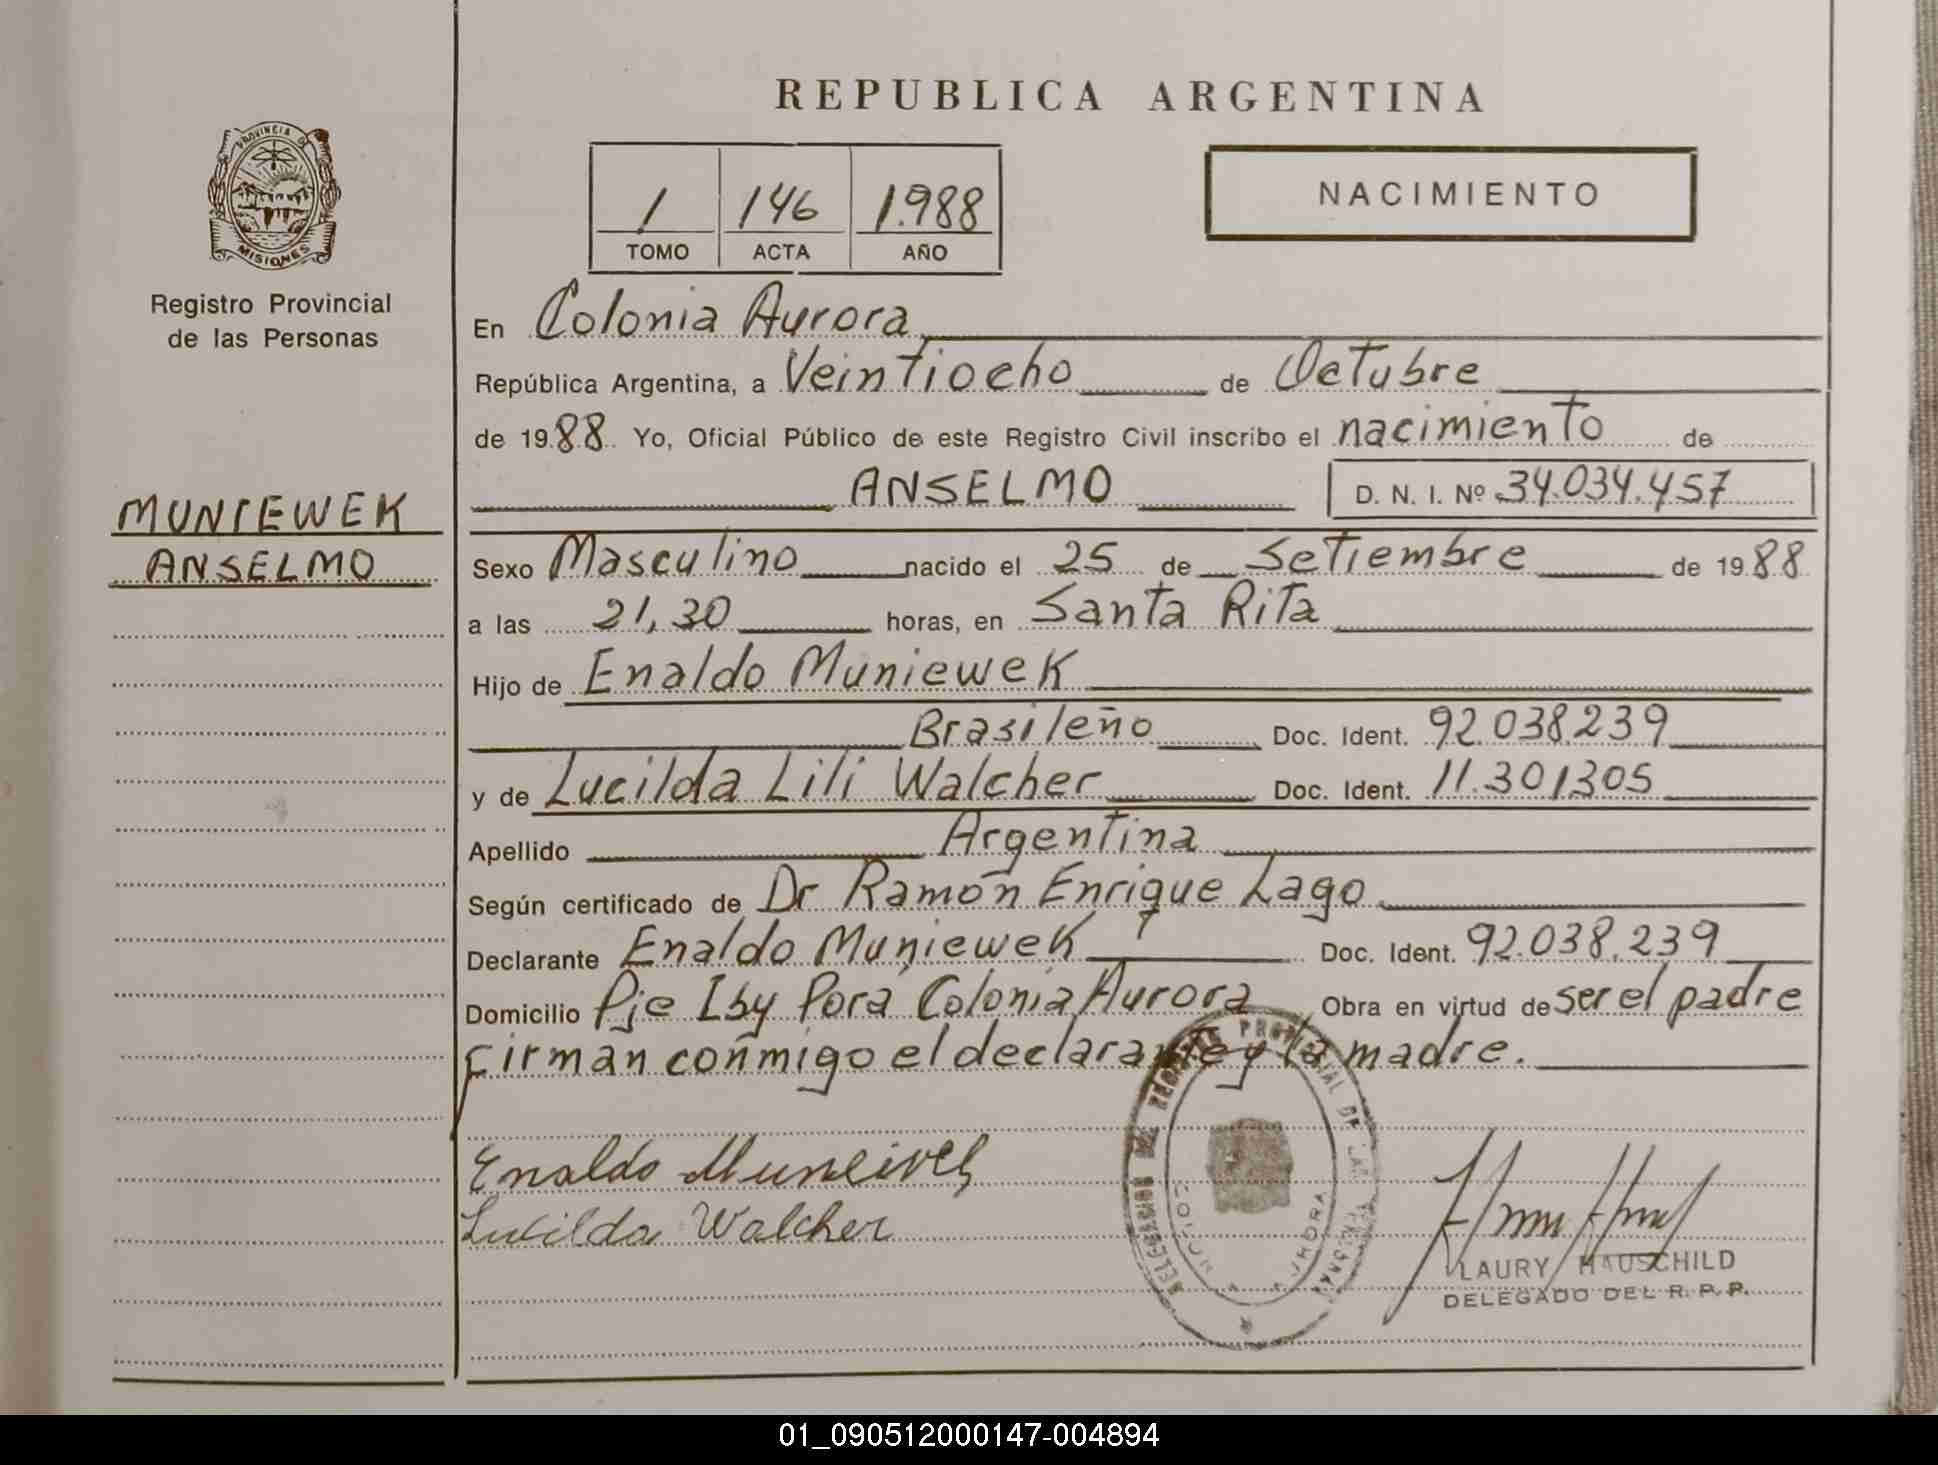 REPUBLICA ARGENTINA
PROVINCIA DE
MISIONES
Registro Provincial
de las Personas
1 146 1.988
TOMO ACTA AÑO
NACIMIENTO
MUNIEWEK
ANSELMO
En Colonia Aurora
República Argentina, a Veintiocho de Octubre
de 1988 Yo, Oficial Público de este Registro Civil inscribo el nacimiento de
ANSELMO D. N. I. Nº 34.034.457
Sexo Masculino nacido el 25 de Setiembre de 1988
a las 21,30 horas, en Santa Rita
Hijo de Enaldo Muniewek
Brasileño Doc. Ident. 92.038.239
y de Lucilda Lili Walcher Doc. Ident. 11.301.305
Apellido Argentina
Según certificado de Dr Ramón Enrique Lago
Declarante Enaldo Muniewek Doc. Ident. 92.038.239
Domicilio Pje Iby Porá Colonia Aurora Obra en virtud de ser el padre
firman conmigo el declarante y la madre.
Enaldo
Lucilda Walcher
DELEGACION DEL REGISTRO PROVINCIAL DE LAS PERSONAS
COLONIA AURORA
LAURY HAUSCHILD
DELEGADO DEL R. P. P.
01_090512000147-004894